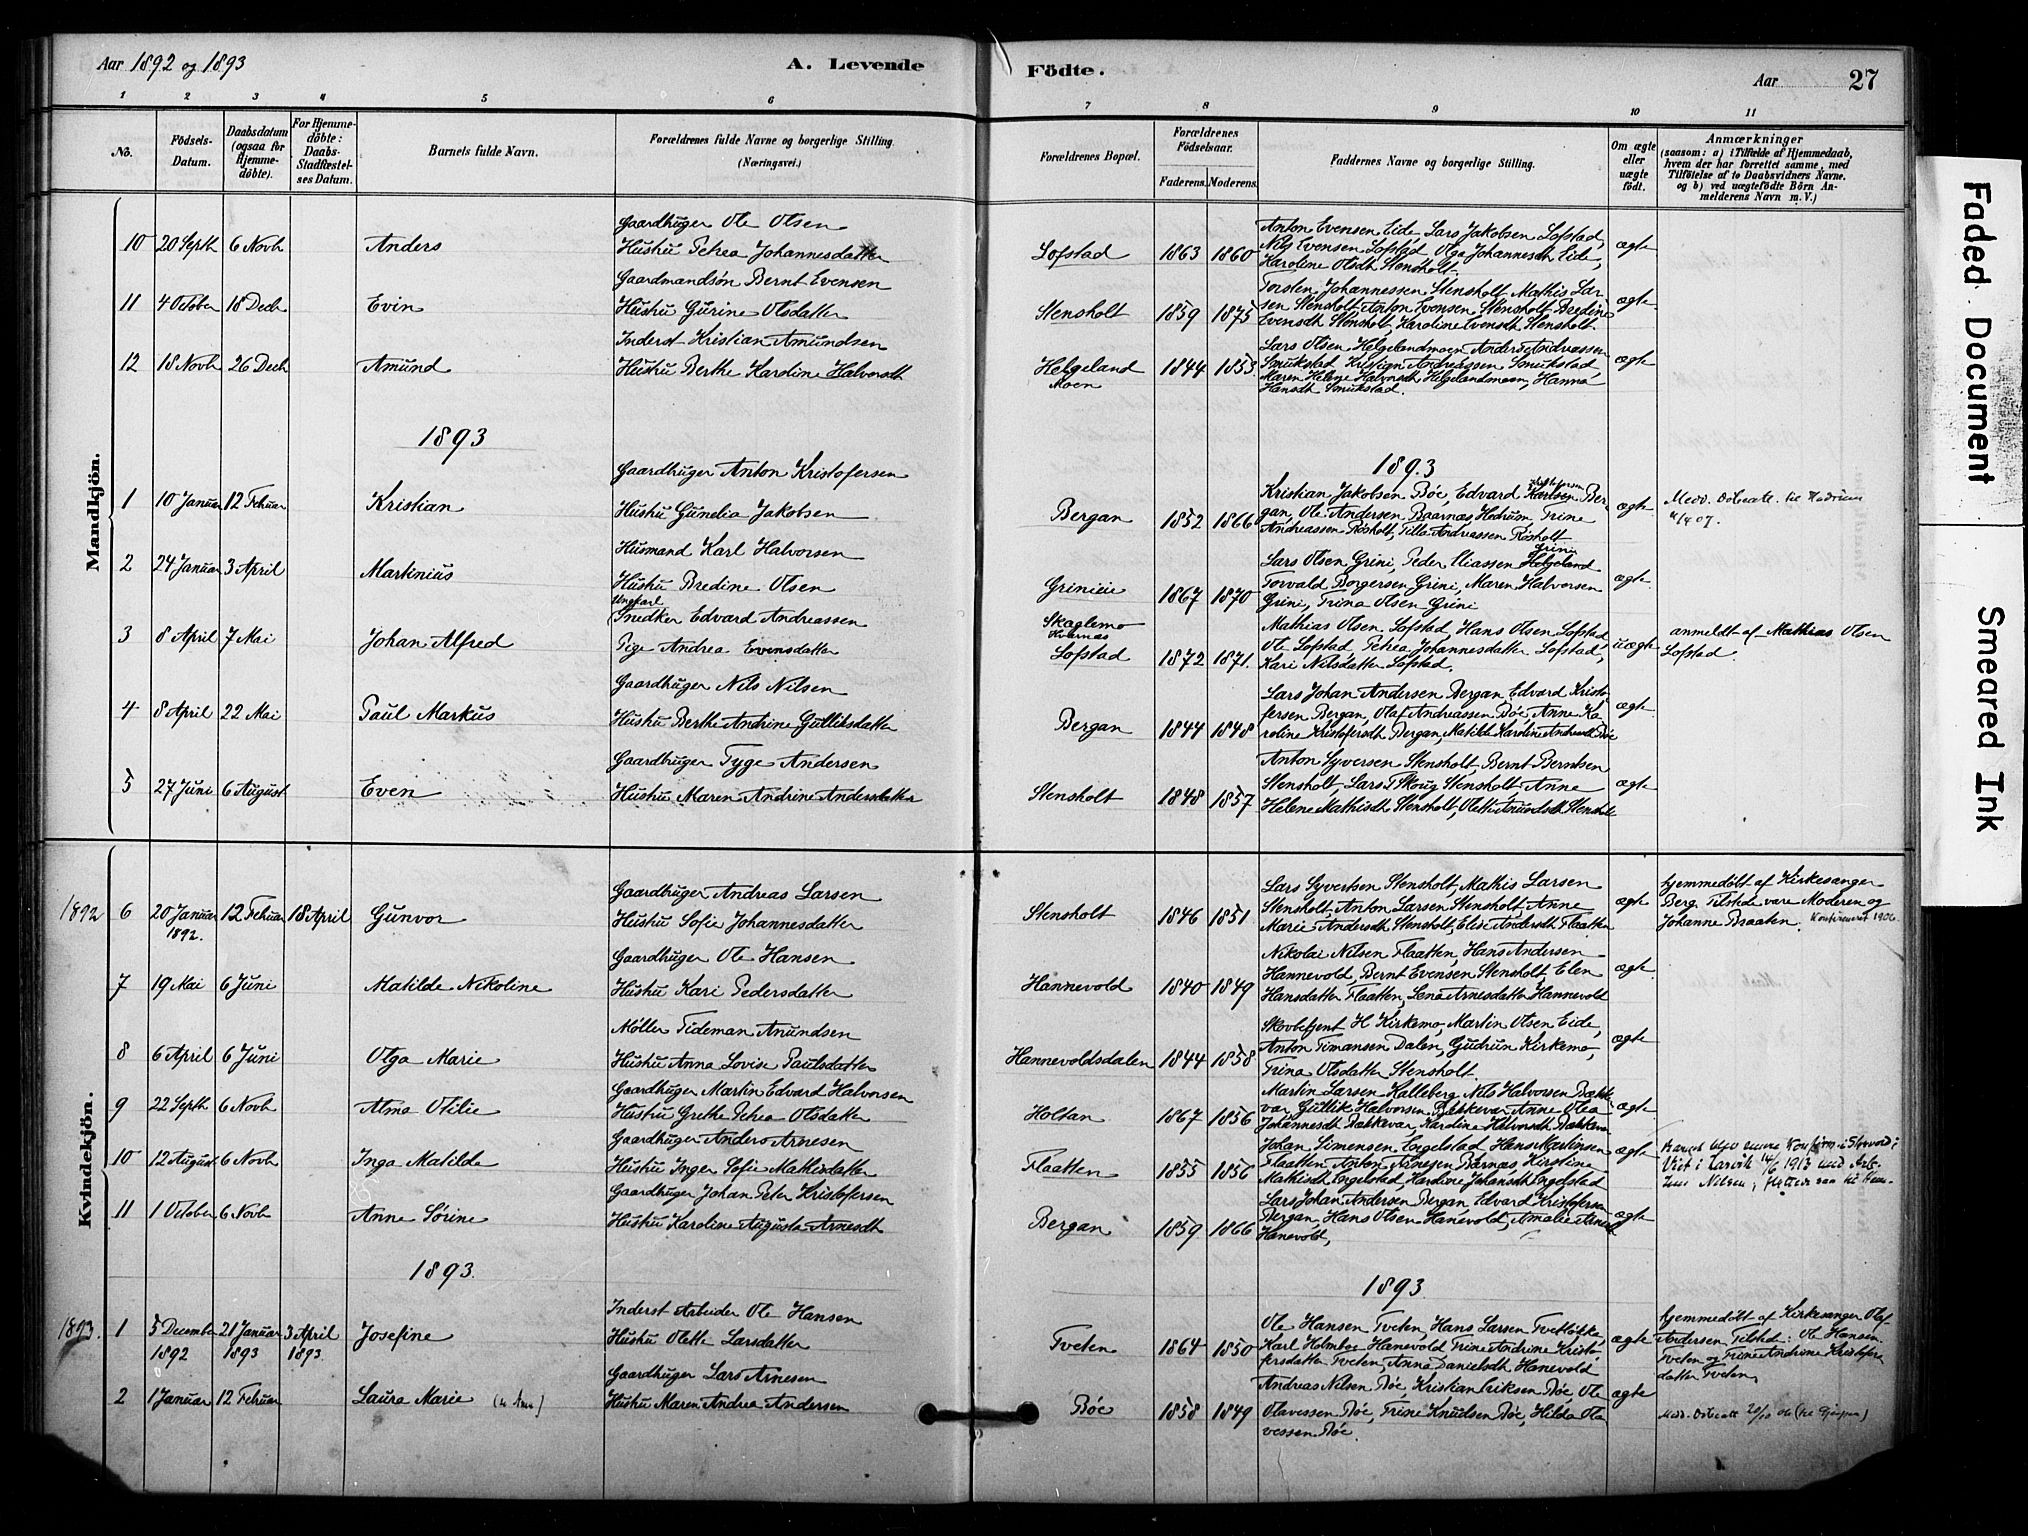 Aar 1892 og 1893
A. Levende
Födte.
Aar 27
1 2 3 4 5 6 7 8 9 10 11
No.
Födsels-Datum.
Daabsdatum (ogsaa for Hjemme-döbte).
For Hjemme-döbte: Daabs-Stadfæstel-ses Datum.
Barnets fulde Navn.
Forældrenes fulde Navne og borgerlige Stilling.
(Næringsvei.)
Forældrenes Bopæl.
Forældrenes Födselsaar.
Faderens. Moderens.
Faddernes Navne og borgerlige Stilling.
Om ægte eller uægte födt.
Anmærkninger
(saasom: a) i Tilfælde af Hjemmedaab, hvem der har forrettet samme, med Tilföielse af to Daabsvidners Navne. og b) ved uægtefödte Börn An-melderens Navn m. V.)
Mandkjön.
Gaardbruger Ole Olsen
10 20 Septb 6 Novb Anders Hustru Petrea Johannesdatter Lofstad 1863 1860
Anton Evensen Eide, Lars Jakobsen Lofstad,
Nils Evensen Lofstad, Olga Johannesdt Eide,
Karoline Olsdt Stensholt
ægte
Gaardmandsøn Bernt Evensen
11 4 October 18 Decb Evin Hustru Gurine Olsdatter Stensholt 1859 1875
Torsten Johannessen Stensholt Mathis Lar-
sen Stensholt Anton Evensen Stensholt Bredine
Evensdt Stensholt, Karoline Evensdt Stensholt
ægte
Inderst Kristian Amundsen
12 18 Novb 26 Decb Amund Hustru Berthe Karoline Halvorsdt Helgeland Moen 1844 1853
Lars Olsen Helgelandmoen Anders Andreassen
Smukstad Kristian Andreassen Smukstad
Maren Helene Halvorsdt Helgelandmoen, Hanna
Hansdt Smukstad.
ægte
1893
1893
Gaardbruger Anton Kristofersen
1 10 Januar 12 Februar Kristian Hustru Gunelia Jakobsen Bergan 1852 1866
Kristian Jakobsen Bøe, Edvard Karlsen Ber-
gan, Ole Andersen Baarnæs Hedrum, Trine
Andreassen Røsholt, Tilla Andreassen Røsholt
ægte
Medd. Dobsatt. til Hedrum
4/4 07.
Husmand Karl Halvorsen
2 24 Januar 3 April Martinius Hustru Bredine Olsen Grinieie 1867 1870
Lars Olsen Grini, Peder Eliassen Helgeland Grini
Torvald Borgersen Grini, Maren Halvorsen
Grini, Trina Olsen Grini
ægte
Ungkarl
Snedker Edvard Andreassen
3 8 April 7 Mai Johan Alfred Pige Andrea Evensdatter Skaglemo Lofstad 1872 1871.
Mathias Olsen Lofstad, Hans Olsen Lofstad
Ole Lofstad Petrea Johannesdatter Lofstad,
Kari Nilsdatter Lofstad.
uægte
anmeldt af Mathias Olsen
Lofstad.
Gaardbruger Nils Nilsen
4 8 April 22 Mai Paul Markus Hustru Berthe Andrine Gulliksdatter Bergan 1844 1848
Lars Johan Andersen Bergan Edvard Kristo-
fersen Bergan, Olaf Andreassen Bøe, Anne Ka-
roline Kristofersdt Bergan, Matilde Karoline Andreasdt Bøe
ægte
Gaardbruger Tyge Andersen
5 27 Juni 6 August Even Hustru Maren Andrine Andersdatter Stensholt 1848 1857
Anton Syversen Stensholt, Bernt Berntsen
Stensholt, Lars T Skoug Stensholt, Anne
Helene Mathisdt Stensholt, Olette Amundsdt Stensholt
ægte
Kvindekjön.
Gaardbruger Andreas Larsen
1892 6 20 Januar 1892. 12 Februar 18 April Gunvor Hustru Sofie Johannesdatter Stensholt 1846 1851
Lars Syvertsen Stensholt, Mathis Larsen
Stensholt, Anton Larsen Stensholt, Anne
Marie Andersdt Stensholt, Elise Andersdt Flaatten
ægte
hjemmedøbt af Kirkesanger
Berg Tilstede vare Moderen og
Johanne Braaten. Konfirmeret 1906.
Gaardbruger Ole Hansen
7 19 Mai 6 Juni Matilde Nikoline Hustru Kari Pedersdatter Hannevold 1840 1849
Nikolai Nilsen Flaatten, Hans Andersen
Hannevold, Bernt Evensen Stensholt, Elen
Hansdatter Flaatten, Lena Arnesdatter Hannevold
ægte
Møller Tideman Anundsen
8 6 April 6 Juni Olga Marie Hustru Anna Lovise Paulsdatter Hannevoldsdalen 1844 1858
Skovbetjent H Kirkemo, Martin Olsen Eide,
Anton Timansen Dalen, Gudrun Kirkemo,
Trina Olsdatter Stensholt
ægte
Gaardbruger Martin Edvard Halvorsen
9 22 Septb 6 Novb Alma Otilie Hustru Grethe Petrea Olsdatter Holtan 1867 1856
Martin Larsen Kalleberg Nils Halvorsen Bakke-
var, Gullik Halvorsen Bakkevar Anne Olea
Johannesdt Bakkevar, Karoline Halvorsdt Bakkevar
ægte
Gaardbruger Anders Arnesen
10 12 August 6 Novb Inga Matilde Hustru Inger Sofie Mathisdatter Flaatten 1855 1856
Johan Simensen Engelstad, Hans Martinsen
Flaatten, Anton Arnesen Barnæs Kirstine
Mathisdt Engelstad Hardine Johansdt Engelstad
ægte
Gaardbruger Johan Peter Kristofersen
11 1 October 6 Novb Anne Sørine Hustru Karoline Augusta Arnesdt Bergan 1859 1866
Lars Johan Andersen Bergan, Edvard Kristofersen
Bergan, Hans Olsen Hanevold, Amalie Arnesdt
Hanevold,
ægte
1893.
1893
Inderst Arbeider Ole Hansen
1893. 1 5 December 1892 21 Januar 1893 3 April 1893. Josefine Hustru Olette Larsdatter Tveten 1864 1850
Ole Hansen Tveten, Hans Larsen Tvetløkka
Karl Holmboe Hanevold Trine Andrine Kristo-
fersdatter Tveten, Anna Danielsdt Hanevold
ægte
hjemmedøbt af Kirkesanger Olaf
Andersen Tilsted: Ole Hansen
Tveten og Trine Andrine Kristofers
datter Tveten,
Gaardbruger Lars Arnesen
2 1 Januar 12 Februar Laura Marie Hustru Maren Andrea Andersen Bøe 1858 1849
Andreas Nilsen Bøe, Kristian Eriksen Bøe, Ole
Olavessen Bøe, Trine Knudsen Bøe, Hilda Ola-
vessen Bøe.
ægte
Faded Document
Smeared Ink